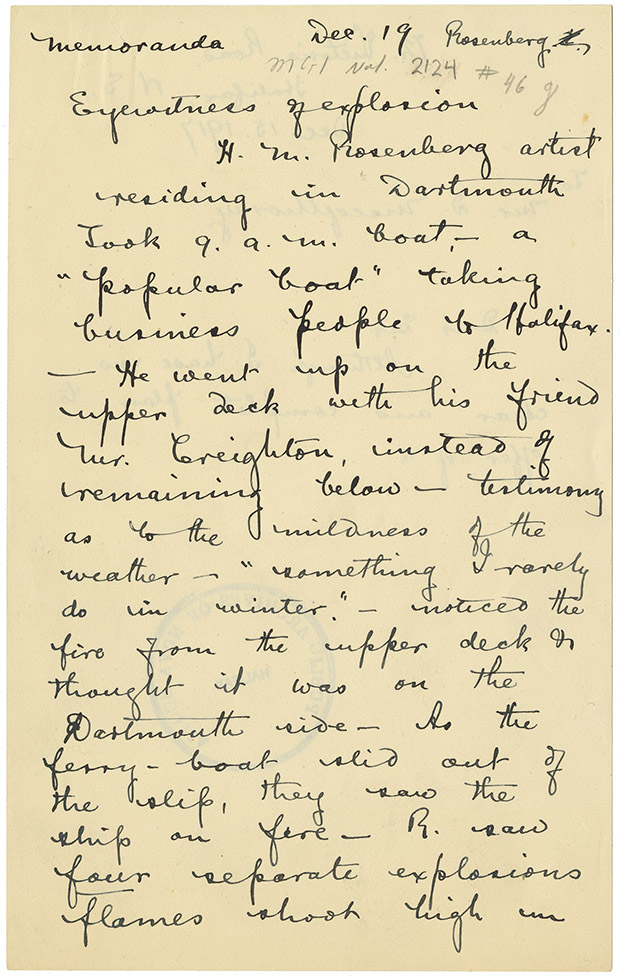 Memoranda Dec. 19 Rosenberg
MG1 Vol. 2124 # 46 g
Eyewitness of explosion
H. M. Rosenberg artist
residing in Dartmouth
Took 9. a. m. boat, – a
"popular boat" taking
business people to Halifax.
– He went up on the
upper deck with his friend
Mr. Creighton, instead of
remaining below – testimony
as to the mildness of the
weather – "something I rarely
do in winter." – noticed the
fire from the upper deck &
thought it was on the
Dartmouth side – As the
ferry-boat slid out of
the slip, they saw the
ship on fire – R. saw
four separate explosions
flames shoot high in